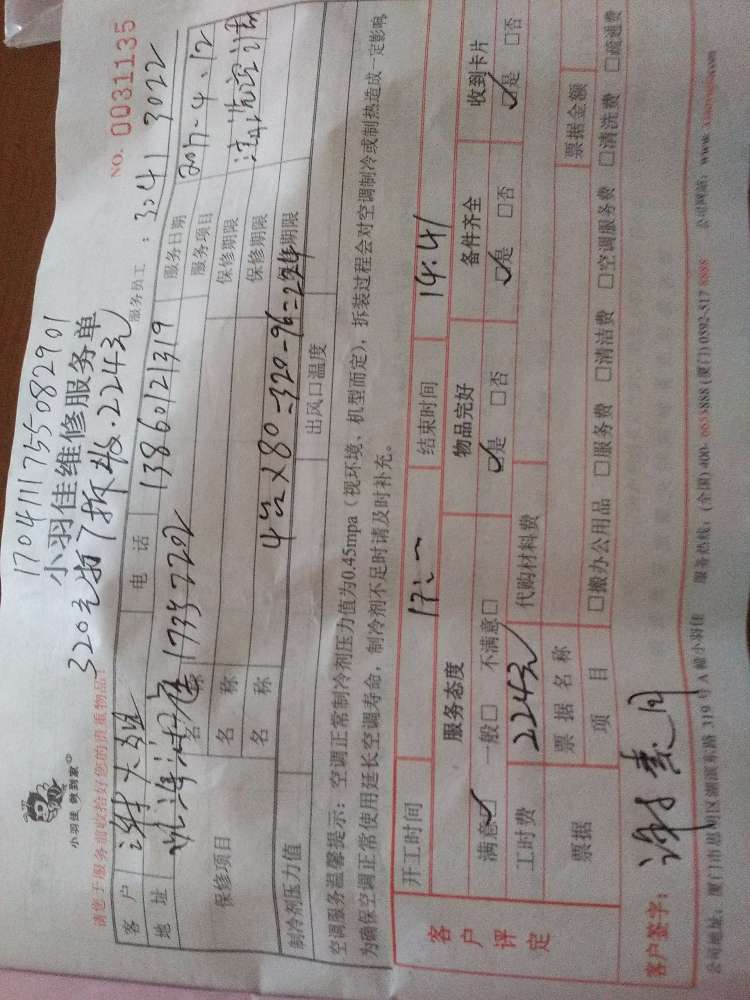 1704111755082901
小羽佳 做到家
小羽佳维修服务单
NO. 0031135
320元打7折收.224元
请您于服务前收拾好您的贵重物品!
服务员工：3041 3022
客户
电话 13860121319
服务日期 2017-4.12
地址
服务项目
保修项目
名称
保修期限
名称
保修期限
名称
保修期限
4台×80=320-96=224
制冷剂压力值
出风口温度
空调服务温馨提示：空调正常制冷剂压力值为0.45mpa（视环境、机型而定），拆装过程会对空调制冷或制热造成一定影响，
为确保空调正常使用延长空调寿命，制冷剂不足时请及时补充。
客户评定
开工时间
结束时间 14:41
服务态度
物品完好
备件齐全
收到卡片
满意□ 一般□ 不满意□
□是 □否
□是 □否
□是 □否
工时费 224元
代购材料费
票据
票据名称
票据金额
项目
□搬办公用品 □服务费 □清洁费 □空调服务费 □清洗费 □疏通费
客户签字：
公司地址：厦门市思明区湖滨东路 319 号 A 幢小羽佳
服务热线：(全国) 400-6633888 (厦门) 0592-517 8888
公司网站：www.